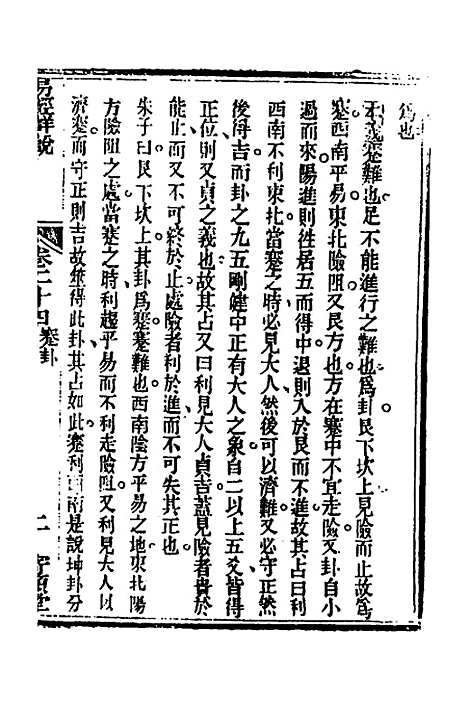 爲也
本義蹇難也足不能進行之難也爲卦艮下坎上見險而止故爲
蹇西南平易東北險阻又艮方也方在蹇中不宜走險又卦自小
過而來陽進則往居五而得中退則入於艮而不進故其占曰利
西南不利東北當蹇之時必見大人然後可以濟難又必守正然
後得吉而卦之九五剛健中正有大人之象自二以上五爻皆得
正位則又貞之義也故其占又曰利見大人貞吉蓋見險者貴於
能止而又不可終於止處險者利於進而不可失其正也
朱子曰艮下坎上其卦爲蹇蹇難也西南陰方平易之地東北陽
方險阻之處當蹇之時利趨平易而不利走險阻又利見大人以
濟蹇而守正則吉故筮得此卦其占如此蹇利西南是說坤卦分
易經詳說
卷二十四 蹇卦
二